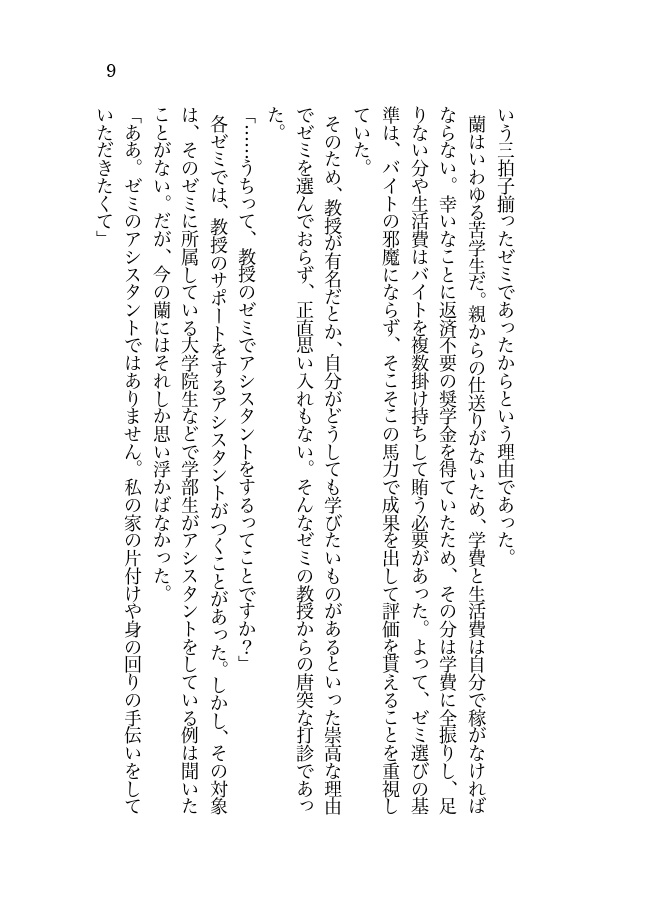 9
いう三拍子揃ったゼミであったからという理由であった。
　蘭はいわゆる苦学生だ。親からの仕送りがないため、学費と生活費は自分で稼がなければ
ならない。幸いなことに返済不要の奨学金を得ていたため、その分は学費に全振りし、足
りない分や生活費はバイトを複数掛け持ちして賄う必要があった。よって、ゼミ選びの基
準は、バイトの邪魔にならず、そこそこの馬力で成果を出して評価を貰えることを重視し
ていた。
　そのため、教授が有名だとか、自分がどうしても学びたいものがあるといった崇高な理由
でゼミを選んでおらず、正直思い入れもない。そんなゼミの教授からの唐突な打診であっ
た。
「……うちって、教授のゼミでアシスタントをするってことですか？」
　各ゼミでは、教授のサポートをするアシスタントがつくことがあった。しかし、その対象
は、そのゼミに所属している大学院生などで学部生がアシスタントをしている例は聞いた
ことがない。だが、今の蘭にはそれしか思い浮かばなかった。
「ああ。ゼミのアシスタントではありません。私の家の片付けや身の回りの手伝いをして
いただきたくて」